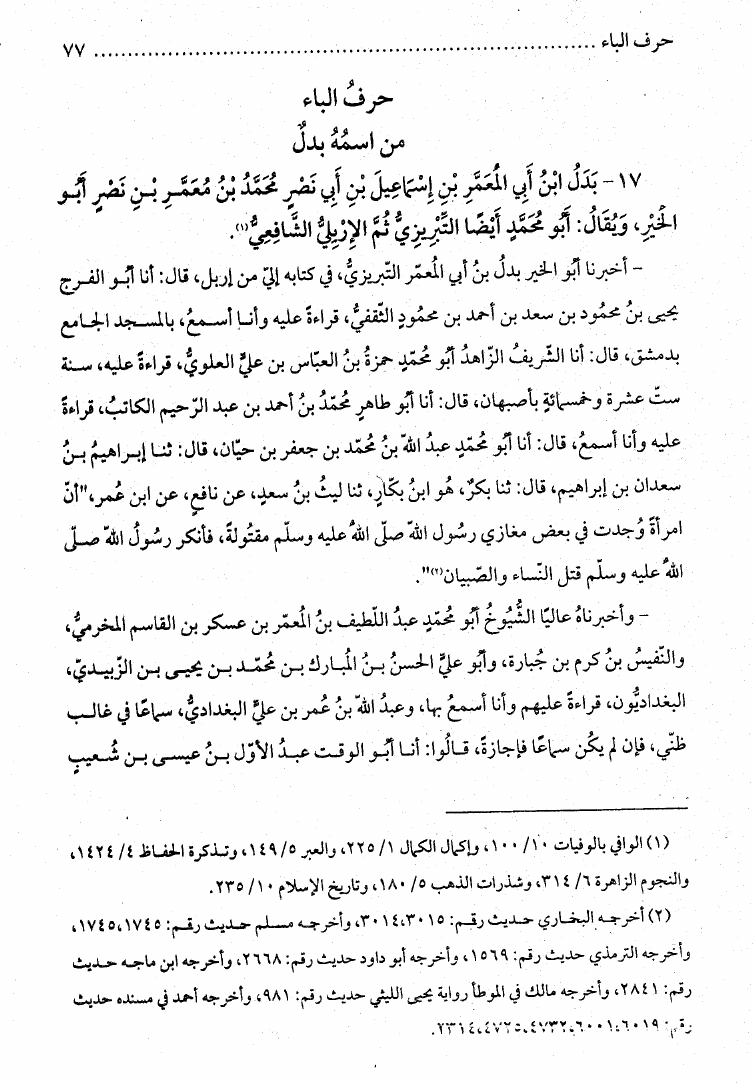 حرف الباء ........................................................................ ٧٧
حرفُ الباء
من اسمُهُ بدلٌ
١٧- بَدَلُ ابْنُ أَبِي الْمُعَمَّرِ بْنِ إِسْمَاعِيلَ بْنِ أَبِي نَصْرٍ مُحَمَّدُ بْنُ مُعَمَّرِ بْنِ نَصْرٍ أَبُو
الْخَيْرِ، وَيُقَالُ: أَبُو مُحَمَّدٍ أَيْضًا التَّبْرِيزِيُّ ثُمَّ الإِرْبِلِيُّ الشَّافِعِيُّ(١).
- أخبرنا أبُو الخير بدلُ بنُ أبي المُعمّر التّبريزيُّ، في كتابه إليّ من إربل، قال: أنا أبُو الفرج
يحيى بنُ محمُود بن سعد بن أحمد بن محمُودٍ الثّقفيُّ، قراءةً عليه وأنا أسمعُ، بالمسجد الجامع
بدمشق، قال: أنا الشّريفُ الزّاهدُ أبُو مُحمّدٍ حمزةُ بنُ العبّاس بن عليٍّ العلويُّ، قراءةً عليه، سنة
ستّ عشرة وخمسمائةٍ بأصبهان، قال: أنا أبُو طاهرٍ مُحمّدُ بنُ أحمد بن عبد الرّحيم الكاتبُ، قراءةً
عليه وأنا أسمعُ، قال: أنا أبُو مُحمّدٍ عبدُ اللهّ بنُ مُحمّد بن جعفر بن حيّان، قال: ثنا إبراهيمُ بنُ
سعدان بن إبراهيم، قال: ثنا بكرٌ، هُو ابنُ بكّارٍ، ثنا ليثُ بنُ سعدٍ، عن نافعٍ، عن ابن عُمر،"أنّ
امرأةً وُجدت في بعض مغازي رسُول اللهّ صلّى اللهُ عليه وسلّم مقتُولةً، فأنكر رسُولُ اللهّ صلّى
اللهُ عليه وسلّم قتل النّساء والصّبيان(٢)".
- وأخبرناهُ عاليًا الشُّيُوخُ أبُو مُحمّدٍ عبدُ اللّطيف بنُ المُعمّر بن عسكر بن القاسم المخرميُّ،
والنّفيسُ بنُ كرم بن جُبارة، وأبُو عليٍّ الحسنُ بنُ المُبارك بن مُحمّد بن يحيى بن الزّبيديّ،
البغداديُّون، قراءةً عليهم وأنا أسمعُ بها، وعبدُ اللهّ بنُ عُمر بن عليٍّ البغداديُّ، سماعًا في غالب
ظنّي، فإن لم يكُن سماعًا فإجازةً، قالُوا: أنا أبُو الوقت عبدُ الأوّل بنُ عيسى بن شُعيبٍ
(١) الوافي بالوفيات ١٠/ ١٠٠، وإكمال الكمال ١/ ٢٢٥، والعبر ٥/ ١٤٩، وتذكرة الحفاظ ٤/ ١٤٢٤،
والنجوم الزاهرة ٦/ ٣١٤، وشذرات الذهب ٥/ ١٨٠، وتاريخ الإسلام ١٠/ ٢٣٥.
(٢) أخرجه البخاري حديث رقم: ٣٠١٤،٣٠١٥، وأخرجه مسلم حديث رقم: ١٧٤٥،١٧٤٥،
وأخرجه الترمذي حديث رقم: ١٥٦٩، وأخرجه أبو داود حديث رقم: ٢٦٦٨، وأخرجه ابن ماجه حديث
رقم: ٢٨٤١، وأخرجه مالك في الموطأ رواية يحيى الليثي حديث رقم: ٩٨١، وأخرجه أحمد في مسنده حديث
رقم: ٢٣١٤،٤٧٢٥،٤٧٣٢،٦٠٠١،٦٠١٩.